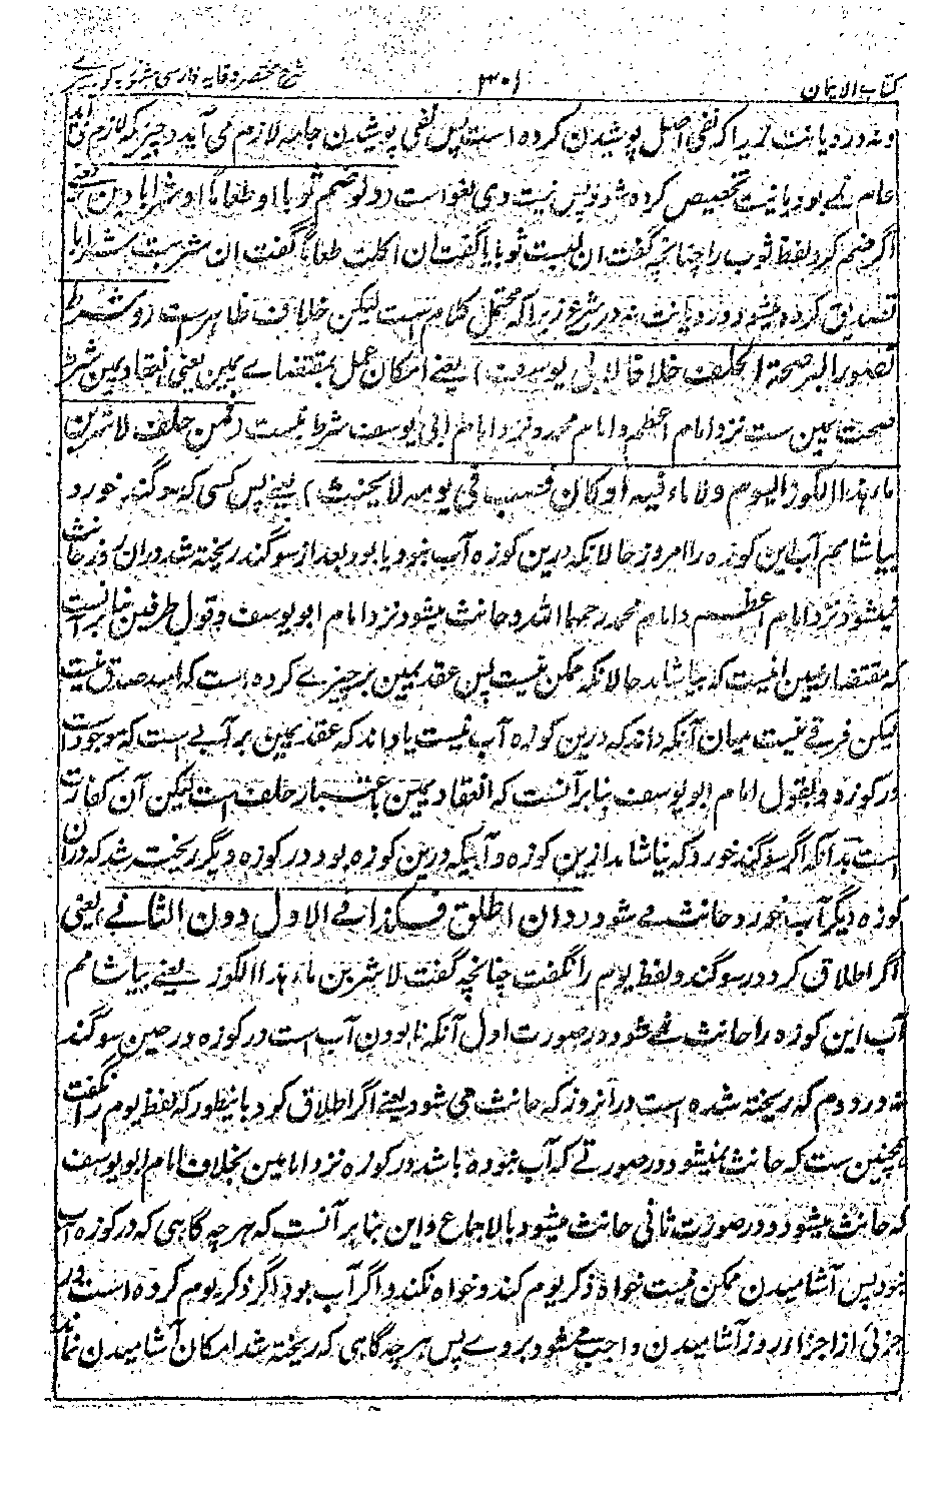 کتاب الایمان ۳۰۱ شرح مختصر وقایه فارسی
ونه در دیانت زیرا که نفی اصل پوشیدن کرده است پس نفی پوشیدن جامه لازم می آید و چیزیکه لازم می آید
عام نمی بود و بانیت تخصیص کرده شود پس نیت وی لغو است (ولو ضم ثوبا او طعاما او شرابا دین) یعنی
اگر ضم کرد لفظ ثوب را چنانچه گفت ان لبست ثوبا یا گفت ان اکلت طعاما گفت ان شربت شرابا
تصدیق کرده میشود در دیانت نه در شرع زیرا که محتمل کلام ست لیکن خلاف ظاهر ست (وشرط
تصور البر صحة الحلف خلافا لابی یوسف) یعنی امکان عمل بمقتضاے یمین یعنی انعقاد یمین شرط
صحت یمین ست نزد امام اعظم و امام محمد و نزد امام ابی یوسف شرط نیست (فمن حلف لاشربن
ماء هذا الکوز الیوم ولا ماء فیه او کان فصب فی یومه لا یحنث) یعنی پس کسی که سوگند خورد
بیاشامم آب این کوزه را امروز حالانکه درین کوزه آب نبود یا بود بعد از سوگند ریخته شد دران روز حانث
نمیشود نزد امام اعظم و امام محمد رحمهما الله و حانث میشود نزد امام ابو یوسف و قول طرفین بنابر آنست
که مقتضاء یمین اینست که بیاشامد حالانکه ممکن نیست پس عقد یمین بر چیزے کرده است که امید صدق نیست
لیکن فرقے نیست میان آنکه داند که درین کوزه آب نیست یا داند که عقد یمین بر آبے است که موجود است
در کوزه و بقول امام ابو یوسف بنابر آنست که انعقاد یمین باعتبار حلف ست لیکن آن کفارت
است بدآنکه اگر سوگند خورد که بیاشامد ازین کوزه و آبیکه درین کوزه بود در کوزه دیگر ریخت شد که دران
کوزه دیگر آب خورد حانث مے شود (وان اطلق فکذا فی الاول دون الثانے) یعنی
اگر اطلاق کرد در سوگند و لفظ یوم را نگفت چنانچه گفت لاشربن ماء هذا الکوز یعنے بیاشامم
آب این کوزه را حانث نمے شود در صورت اول آنکه نابودن آب است در کوزه در حین سوگند
نه در دوم که ریخته شده است در آنروز که حانث می شود یعنے اگر اطلاق کرد باینطور که لفظ یوم را نگفت
همچنین ست که حانث نمیشود در صورتے که آب نبوده باشد در کوزه نزد امامین بخلاف امام ابو یوسف
که حانث میشود و در صورت ثانی حانث میشود بالاجماع و این بنابر آنست که هر چه گاهی که در کوزه آب
نبود پس آشامیدن ممکن نیست خواه ذکر یوم کند و خواه نکند و اگر آب بود اگر ذکر یوم کرده است در
جزئی از اجزاء روز آشامیدن واجب میشود بروے پس هر چه گاهی که ریخته شد امکان آشامیدن نماند